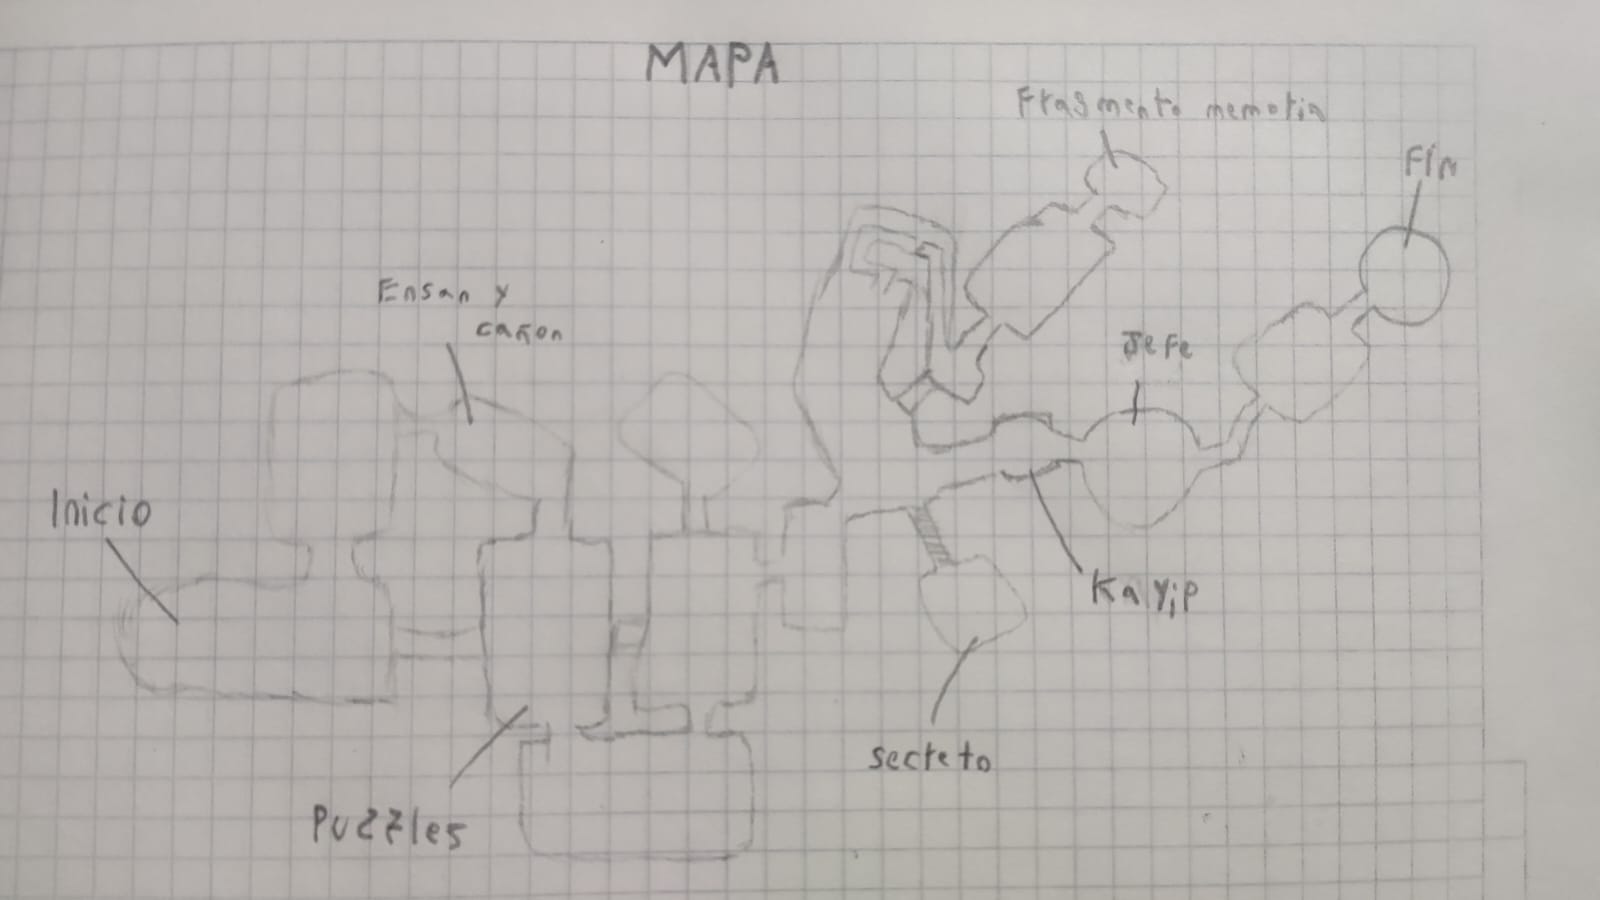 MAPA
Fragmento memoria
Fin
Ensan y
cañon
Jefe
Inicio
Kayip
secreto
Puzzles